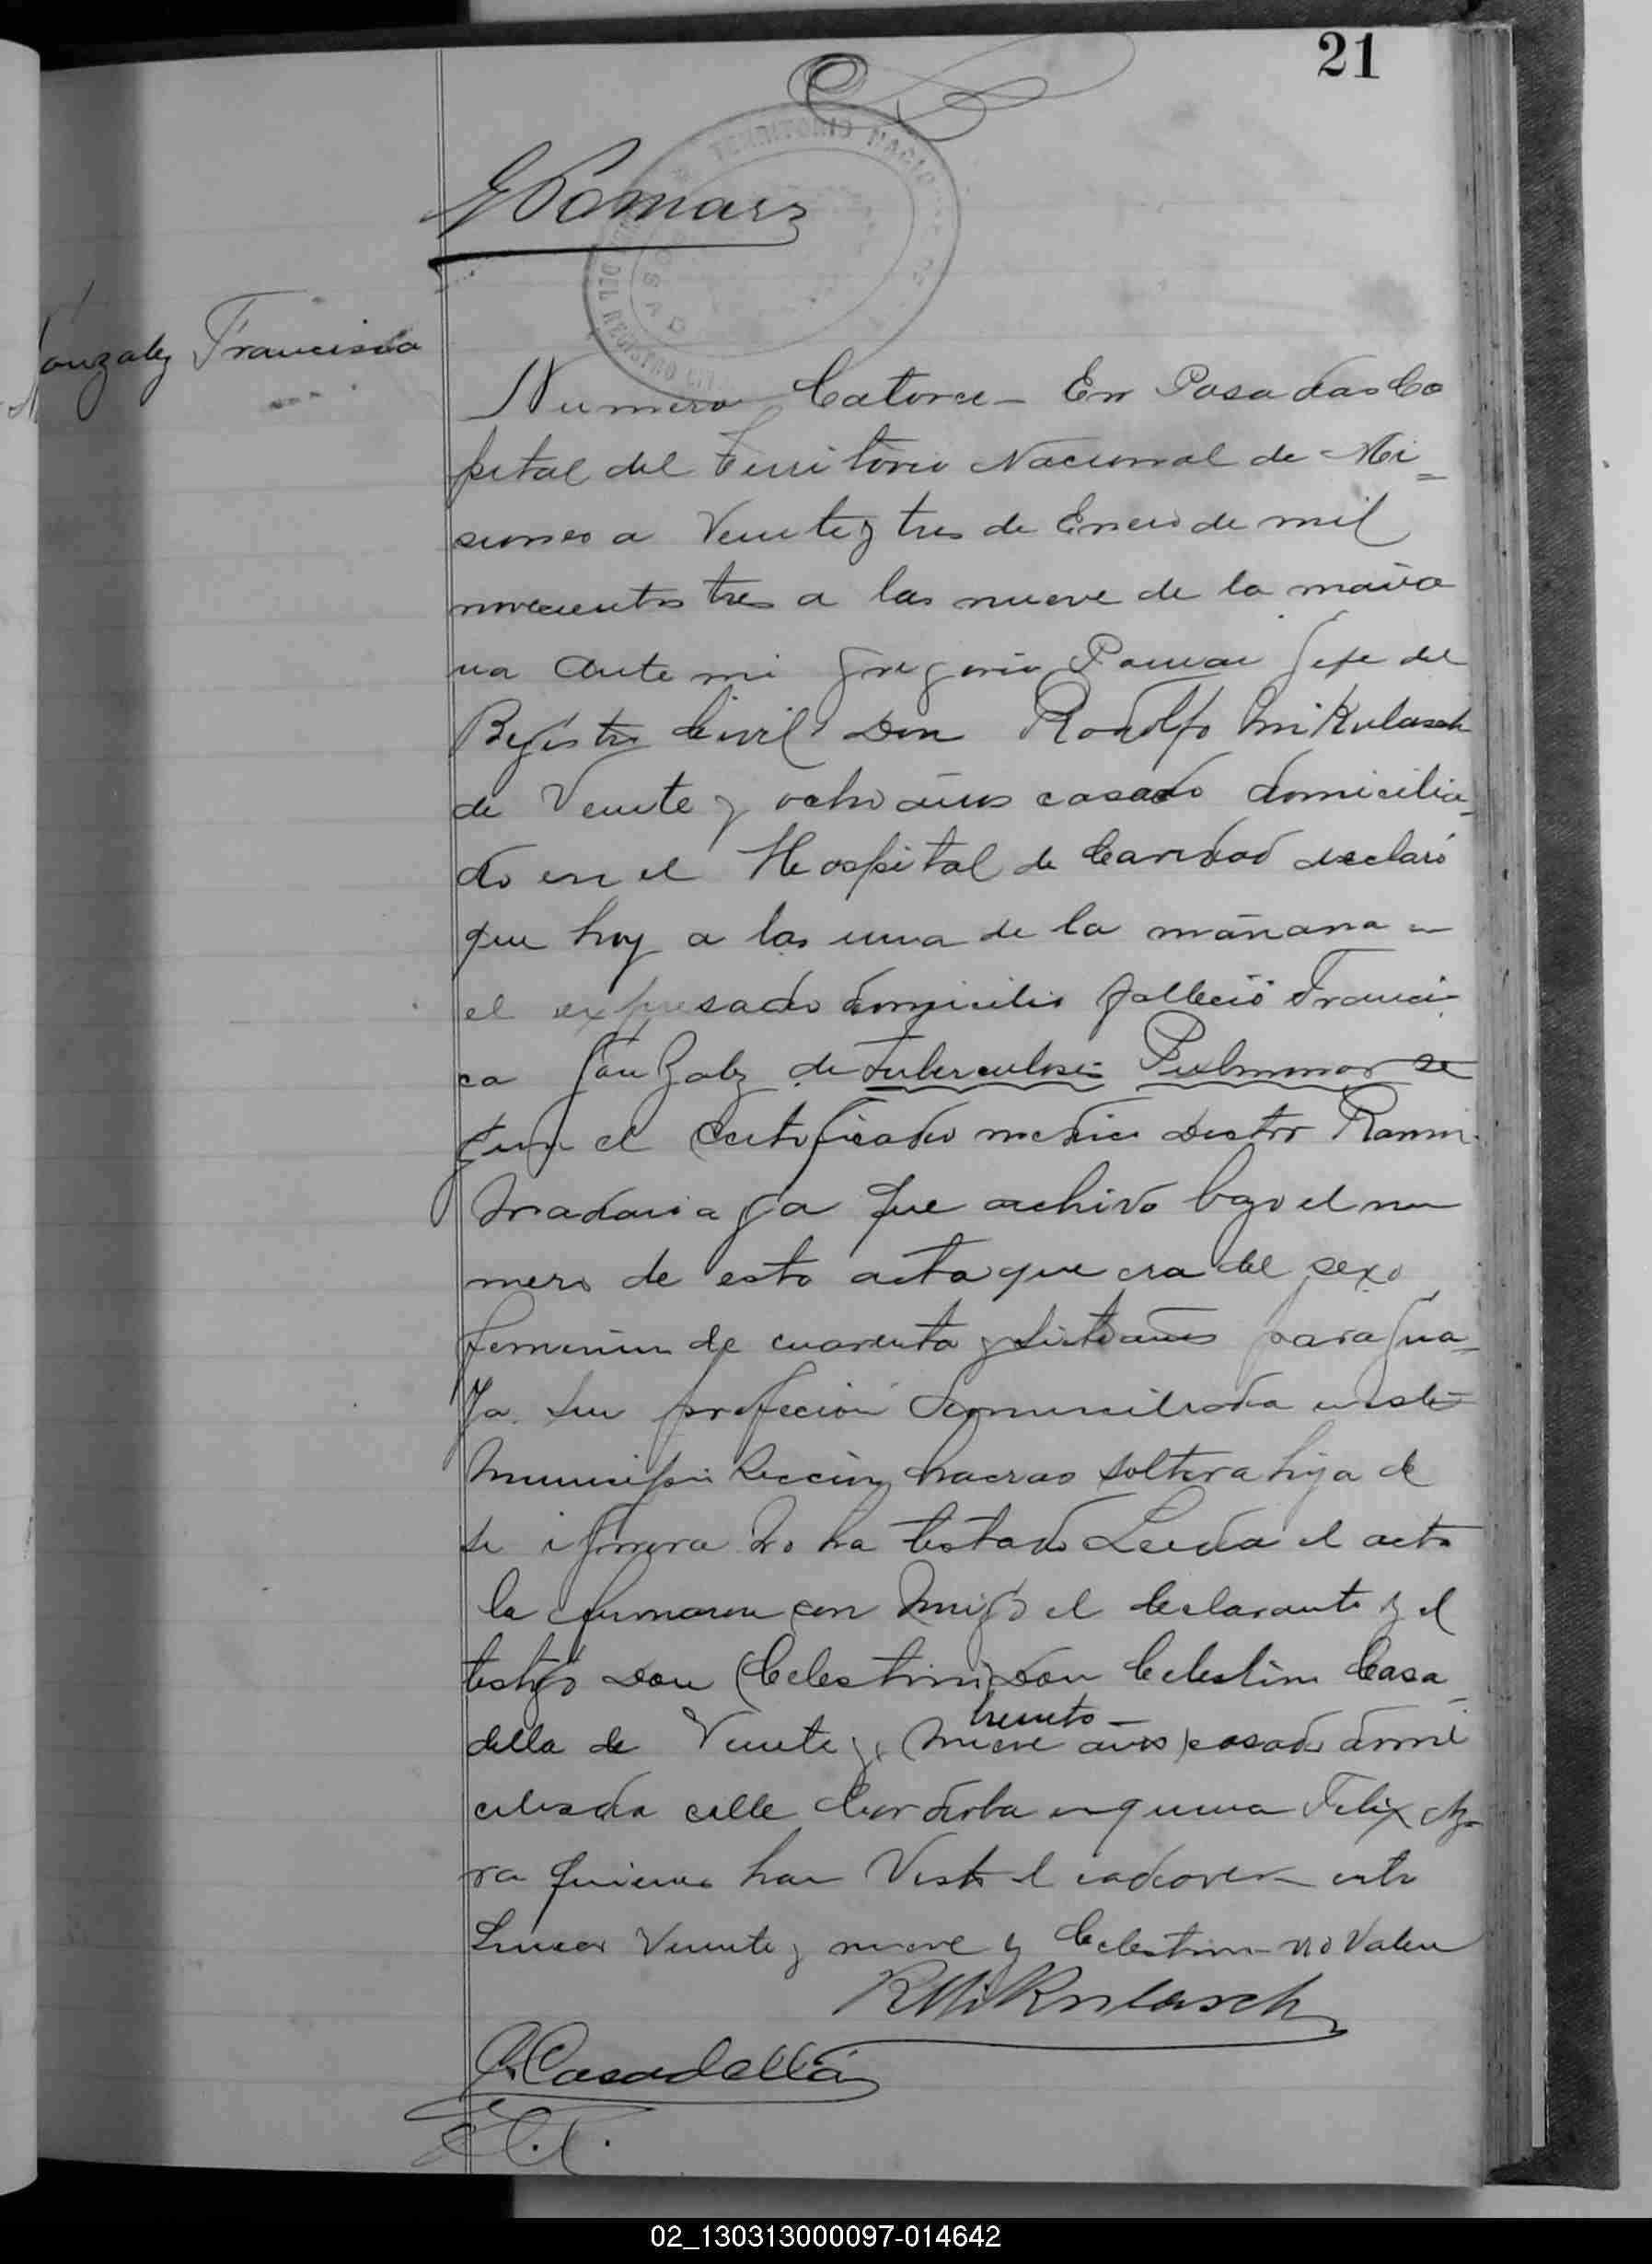 21
G Pomar
TERRITORIO NACIO
DEL REGISTRO CIVIL
POSAD
Gonzalez Francisca
Numero Catorce – En Posadas Ca
pital del Territorio Nacional de Mi=
siones a Veinte y tres de Enero de mil
novecientos tres a las nueve de la maña
na ante mi Gregorio Pomar Jefe del
Registro Civil Don Rodolfo Mikulasch
de Veinte y ocho años casado domicilia
do en el Hospital de Caridad declaró
que hoy a las una de la mañana en
el expresado domicilio falleció Francis
ca Gonzalez de Tuberculosis Pulmonar se
gun el certificado medico doctor Ramon
Madariaga que archivo bajo el nu
mero de esta acta que era del sexo
femenino de cuarenta y siete años paragua=
ya sin profecion domiciliada en este
Municipio Seccion chacras soltera hija de
se ignora No ha testado Leida el acta
la firmaron con migo el declarante y el
testigo Don (Celestino) Don Celestino Casa
treinta –
della de Veinte y (nueve años) casado domi
ciliado calle Cordoba esquina Felix Aza
ra quienes han Visto el cadaver – entre
Lineas Veinte y nueve y Celestino – no Valen
R Mikulasch
C. Casadellá
02_130313000097-014642